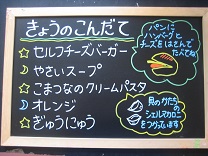 きょうのこんだて
セルフチーズバーガー
やさいスープ
こまつなのクリームパスタ
オレンジ
ぎゅうにゅう
パンに
ハンバーグと
チーズをはさんで
たべてね!
月のかたちの
シェルマカロニ
をつかっています